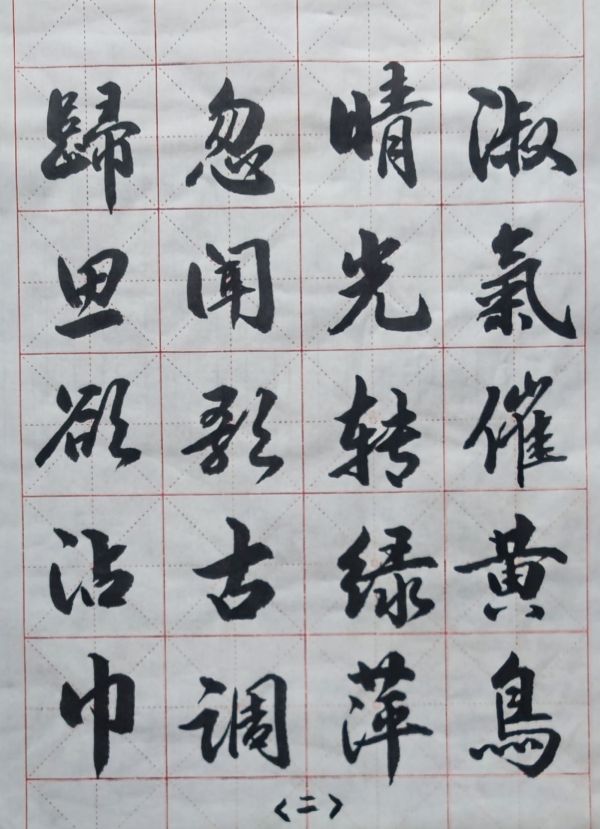 淑氣催黄鳥
晴光转绿萍
忽闻歌古调
歸思欲沾巾
〈二〉